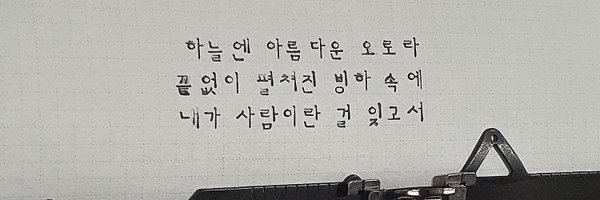 하늘엔 아름다운 오로라
끝없이 펼쳐진 빙하 속에
내가 사람이란 걸 잊고서